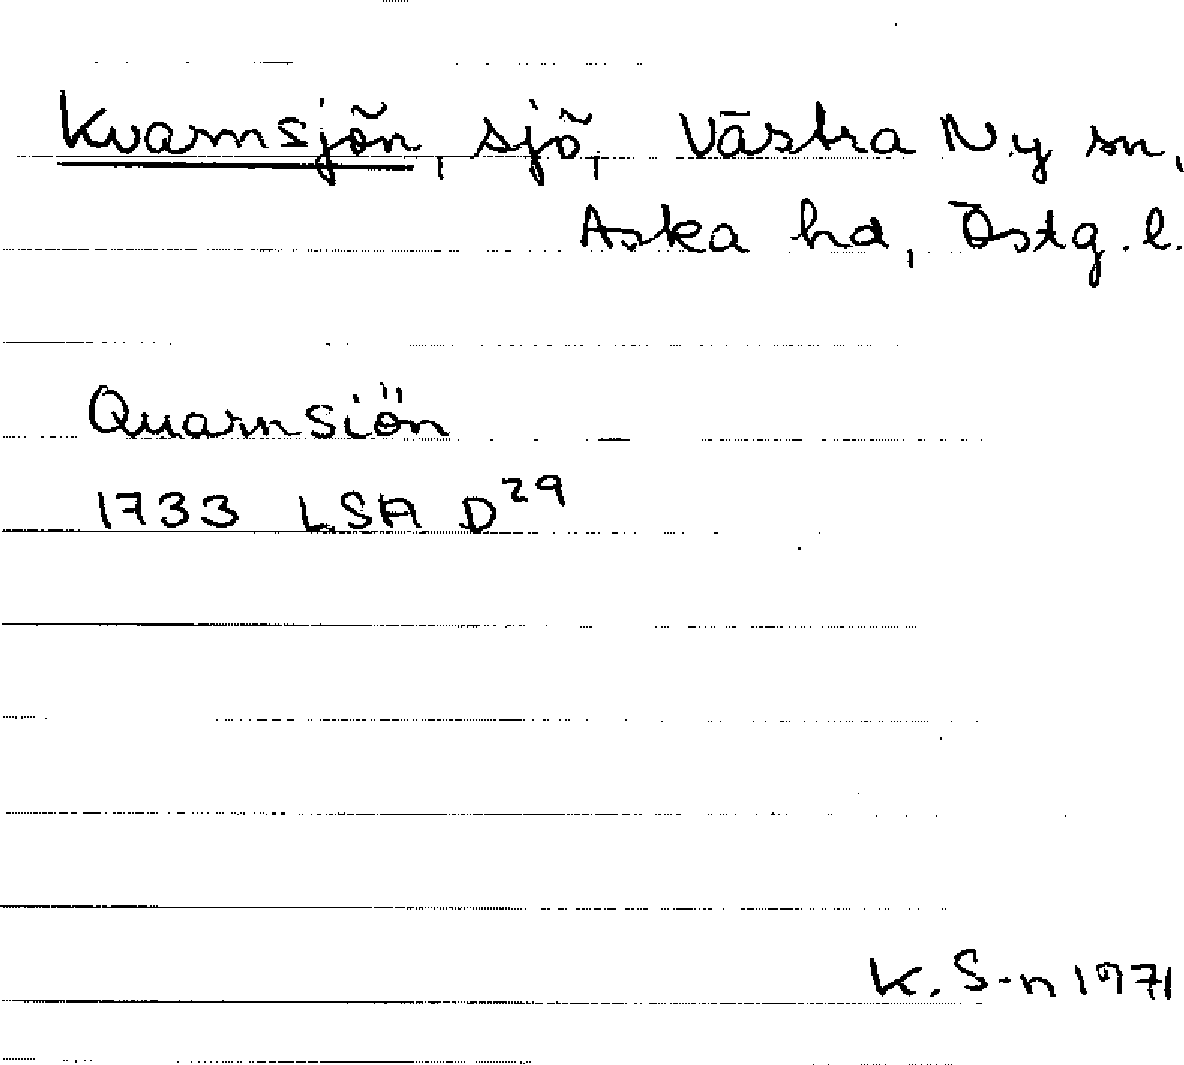 Kvarnsjön, sjö, Västra Ny sn,
Aska hd, Östg. l.
Quarnsiön
1733 LSA D29
K. S-n 1971